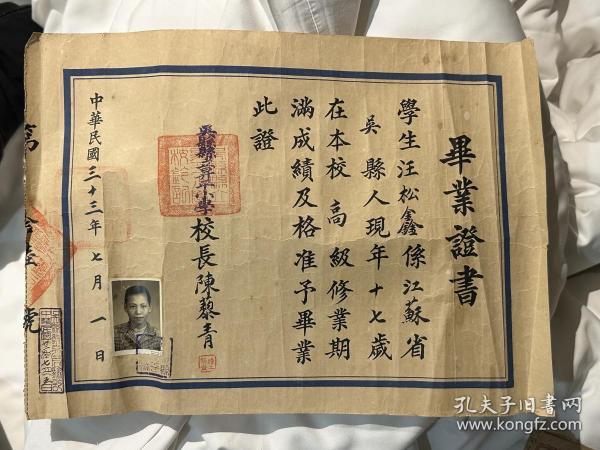 畢業證書
學生汪松鑫係江蘇省
吳縣人現年十七歲
在本校高級修業期
滿成績及格准予畢業
此證
校長陳藜青
中華民國三十三年七月一日
第
號
孔夫子旧书网
www.kongfz.com